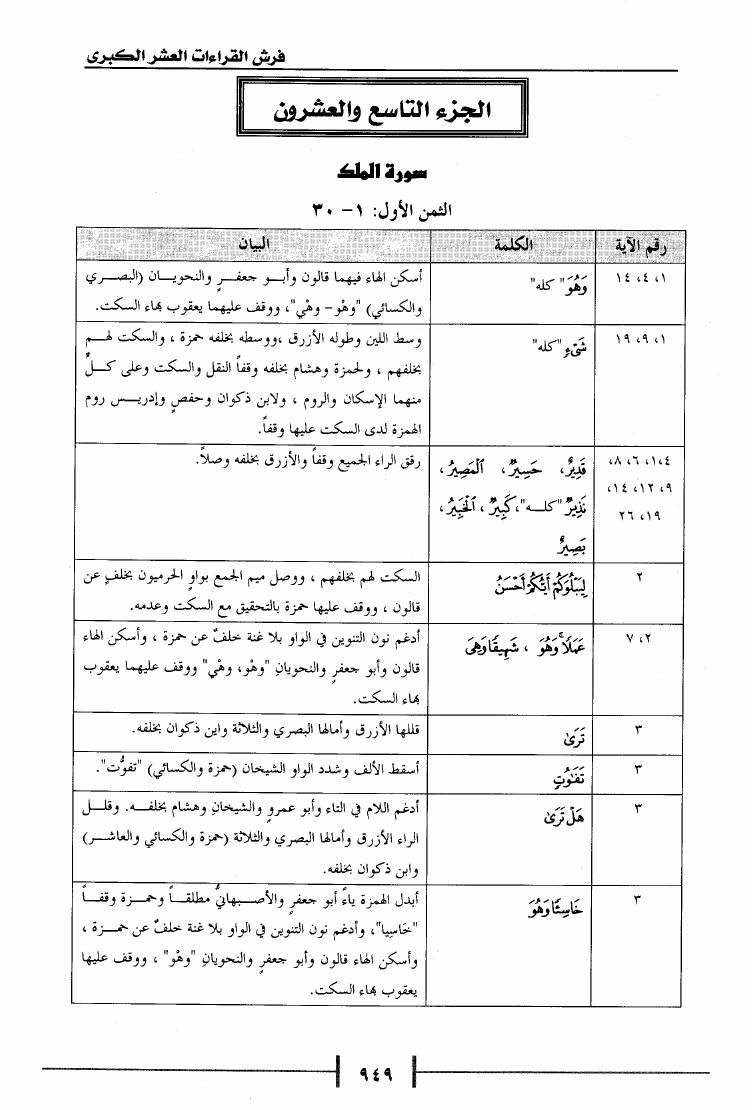 فرش القراءات العشر الكبرى
الجزء التاسع والعشرون
سورة الملك
الثمن الأول: ١- ٣٠
رقم الآية الكلمة البيان
١، ٤، ١٤ وَهُوَ "كله" أسكن الهاء فيهما قالون وأبـو جعفـرٍ والنحويـان (البصـري
والكسائي) "وهْو- وهْي"، ووقف عليهما يعقوب بهاء السكت.
١، ٩، ١٩ شَىْءٍ "كله" وسط اللين وطوله الأزرق ،ووسطه بخلفه حمزة ، والسكت لهـم
بخلفهم ، ولحمزة وهشام بخلفه وقفاً النقل والسكت وعلى كـلٍّ
منهما الإسكان والروم ، ولابن ذكوان وحفصٍ وإدريـس روم
الهمزة لدى السكت عليها وقفاً.
١،٤، ١، ٦، ٨، قَدِيرٌ، حَسِيرٌ، ٱلْمَصِيرُ، رقق الراء الجميع وقفاً والأزرق بخلفه وصلاً.
٩، ١٢، ١٤، نَذِيرٌ "كلـه"، كَبِيرٌ، ٱلْخَبِيرُ،
١٩، ٢٦ بَصِيرٌ
٢ لِيَبْلُوَكُمْ أَيُّكُمْ أَحْسَنُ السكت لهم بخلفهم ، ووصل ميم الجمع بواوٍ الحرميون بخلفٍ عن
قالون ، ووقف عليها حمزة بالتحقيق مع السكت وعدمه.
٢، ٧ عَمَلًا ۚ وَهُوَ ، شَهِيقًا وَهِىَ أدغم نون التنوين في الواو بلا غنة خلفٌ عن حمزة ، وأسكن الهاء
قالون وأبو جعفرٍ والنحويانِ "وهْو، وهْي" ووقف عليهما يعقوب
بهاء السكت.
٣ تَرَىٰ قللها الأزرق وأمالها البصري والثلاثة وابن ذكوان بخلفه.
٣ تَفَـٰوُتٍ أسقط الألف وشدد الواو الشيخان (حمزة والكسائي) "تفوُّت".
٣ هَلْ تَرَىٰ أدغم اللام في التاء وأبو عمروٍ والشيخانِ وهشام بخلفـه. وقلـل
الراء الأزرق وأمالها البصري والثلاثة (حمزة والكسائي والعاشـر)
وابن ذكوان بخلفه.
٣ خَاسِئًا وَهُوَ أبدل الهمزة ياءً أبو جعفرٍ والأصـبهانيُّ مطلقـاً وحمـزة وقفـاً
"خاسِيا"، وأدغم نون التنوين في الواو بلا غنة خلفٌ عن حمـزة ،
وأسكن الهاء قالون وأبو جعفرٍ والنحويانِ "وهْو" ، ووقف عليها
يعقوب بهاء السكت.
٩٤٩